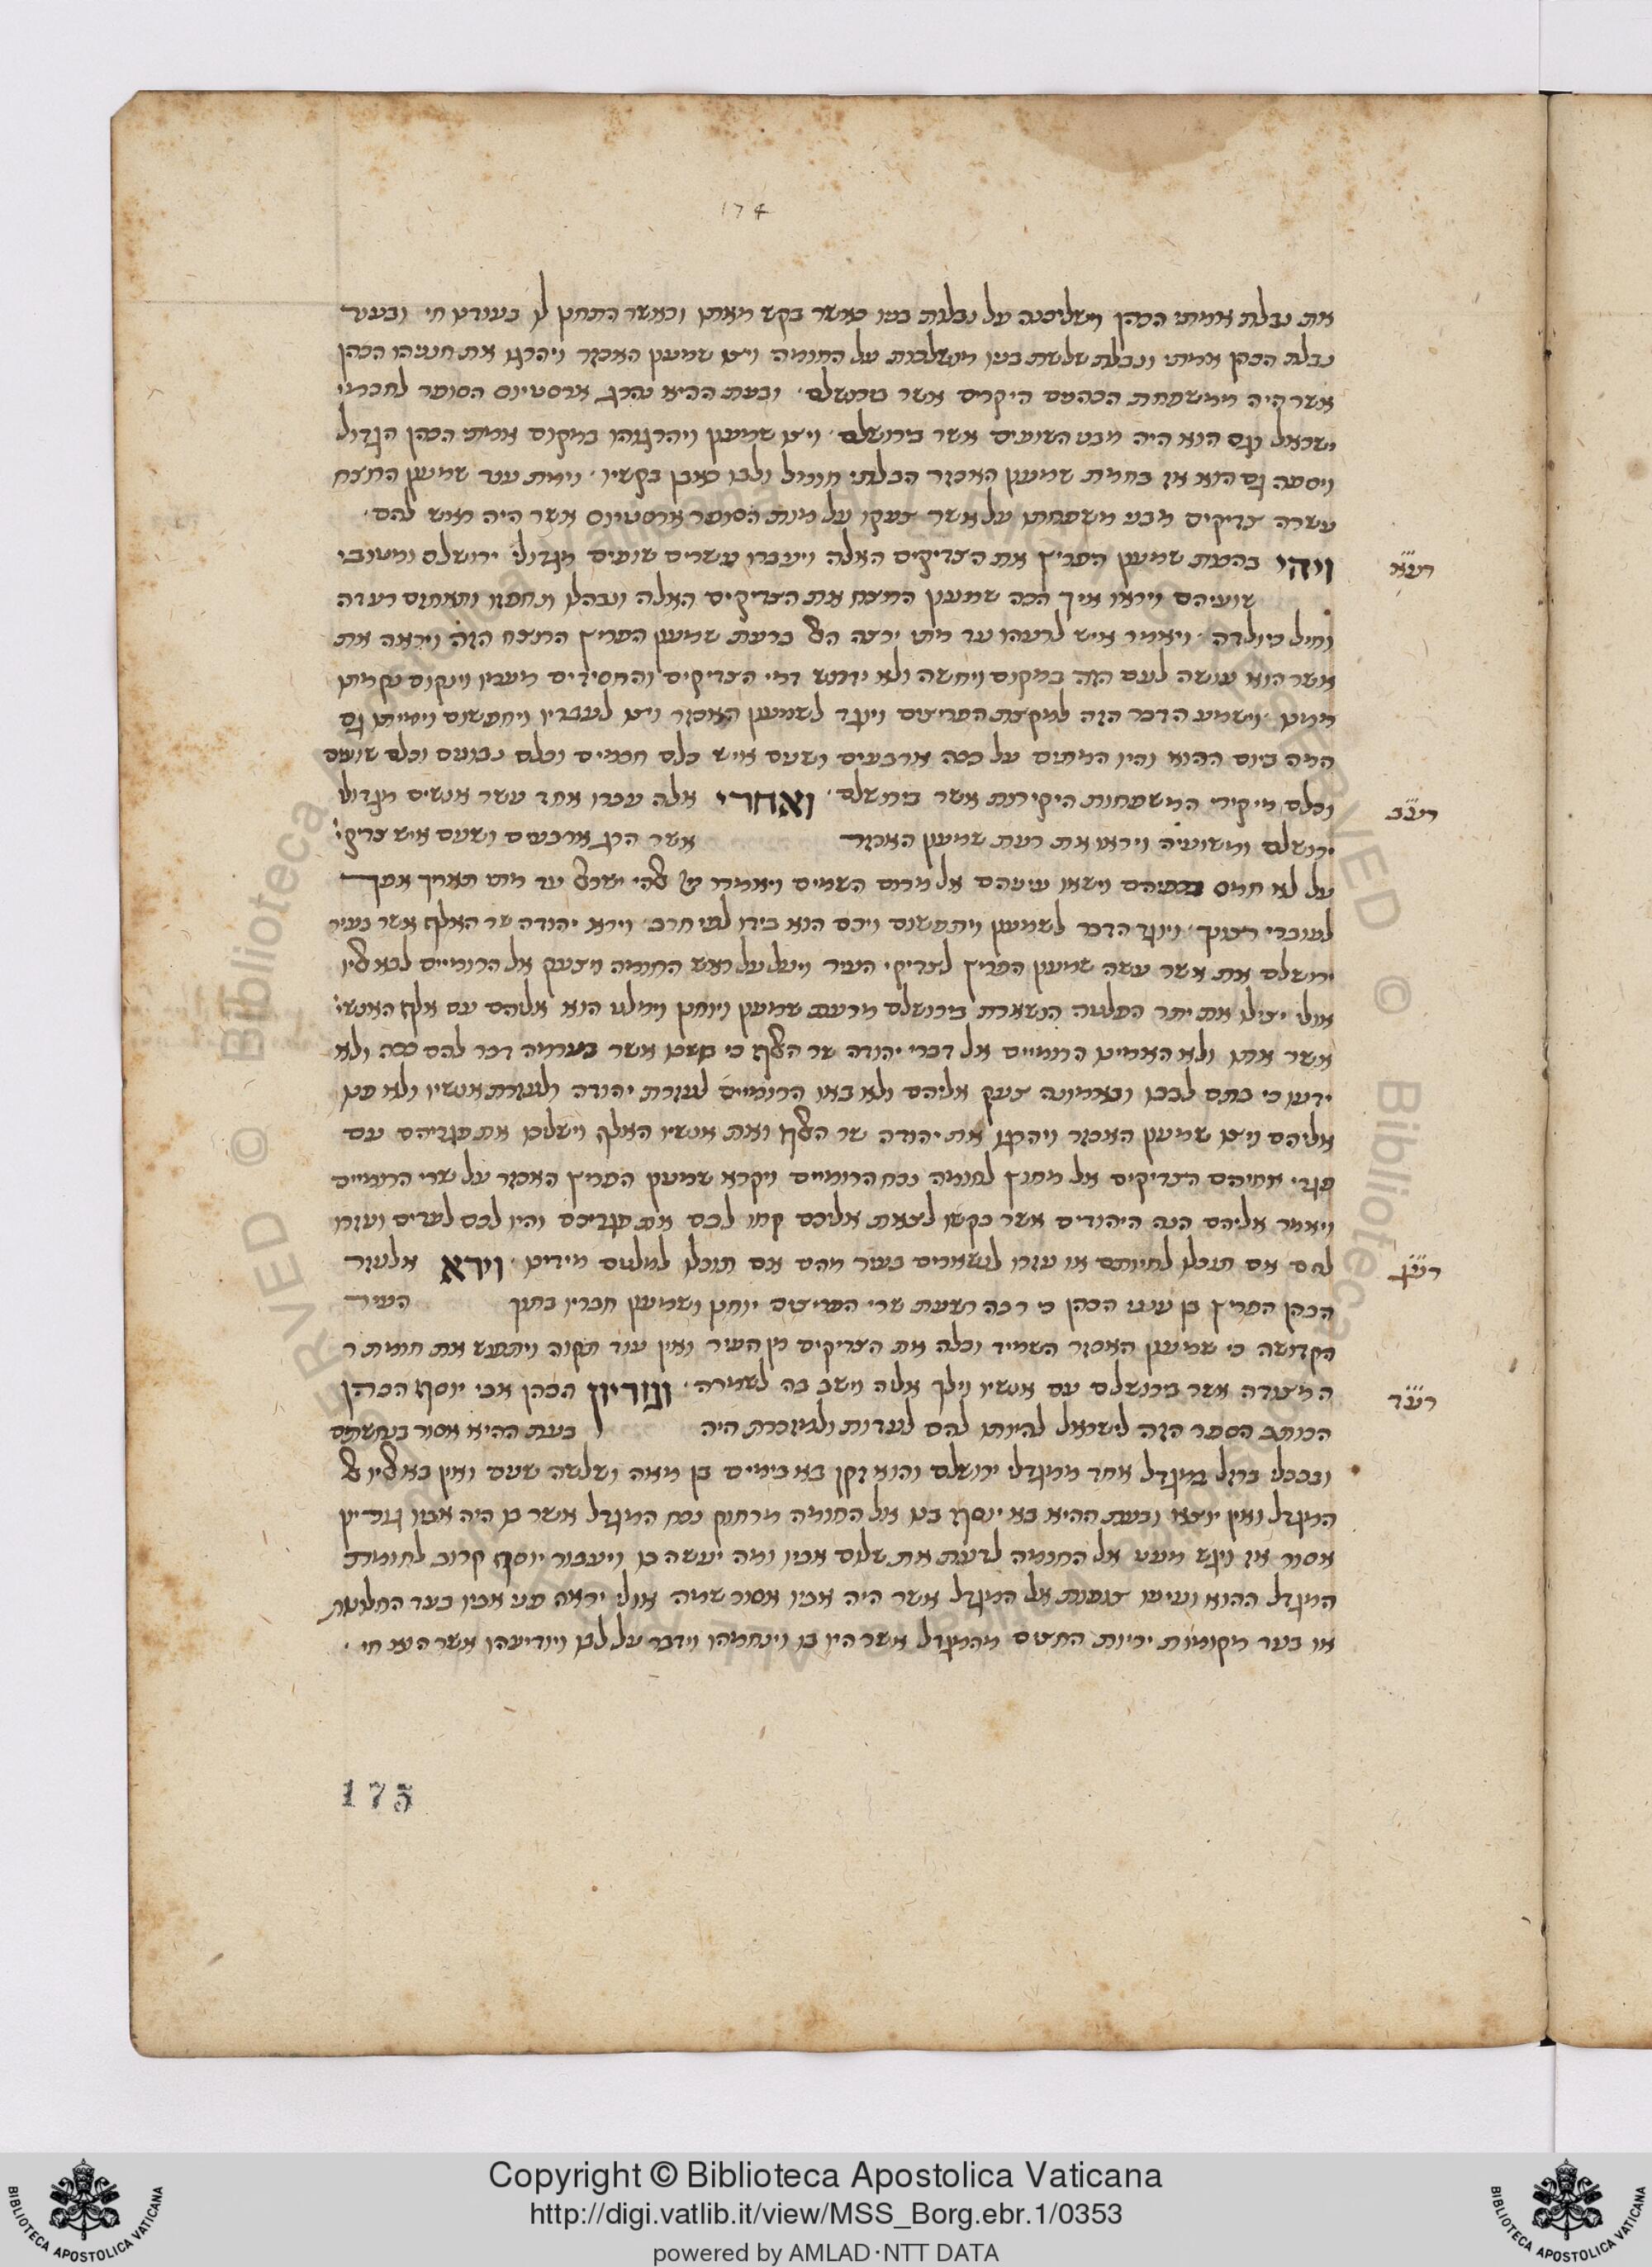 174
את נבלת אמיתי הכהן וישליכוה על נבלות בניו כאשר בקש מאתו וכאשר התחנן לו בעודנו חי ובעוד
נבלת הכהן אמיתי ונבלת שלשת בניו מושלכות על החומה ויצו שמעון האכזר ויהרגו את חנניהו הכהן
אשר היה ממשפחת הכהנים היקרים אשר בירושלם ובעת ההיא נהרג ארסטיוס הסופר לחכמי
ישראל וגם הוא היה מבני השועים אשר בירושלם ויצו שמעון ויהרגוהו במקום אמיתי הכהן הגדול
ויספה גם הוא אז בחמת שמעון האכזר הבלתי חומל ולבו כאבן בקשיו וימת עוד שמעון הרוצח
עשרה צדיקים מבני משפחתו על אשר צעקו על מות הסופר ארסטיוס אשר היה ראש להם
רע״א
ויהי בהמת שמעון הפריץ את הצדיקים האלה ויעברו עשרים שועים מגדולי ירושלם ומטובי
שועיהם ויראו איך הכה שמעון הרוצח את הצדיקים האלה ונבהלו ונחפזו ותאחזם רעדה
וחיל כיולדה ויאמר איש לרעהו עד מתי ירצה האל ברעת שמעון הפריץ הרוצח הזה ויראה את
אשר הוא עושה לעם הזה במקום ויחשה ולא ידרוש דמי הצדיקים והחסידים מעמו וינקום נקמתו
ממנו וישמע הדבר הזה למקצת הפריצים ויוגד לשמעון האכזר ויצו לעבדיו ויתפשום וימיתו גם
המה ביום ההוא והיו המתים על ככה ארבעים ושנים איש כלם חכמים וכלם נבונים וכלם שועים
רע״ב
וכלם מיקירי המשפחות היקירות אשר בירושלם ואחרי אלה עברו אחד עשר אנשים מגדולי
ירושלם ומשועיה ויראו את רעת שמעון האכזר אשר הרג ארבעים ושנים איש צדיקי
על לא חמס בכפיהם וישאו עיניהם אל מרום השמים ויאמרו יי אלהי ישראל עד מתי תאריך אפך
לעוברי רצונך ויוגד הדבר לשמעון ויתפשום ויכם הוא בידו לפי חרב וירא יהודה שר האלף אשר בעיר
ירושלם את אשר עשה שמעון הפריץ לצדיקי העיר ויעל על ראש החומה ויצעק אל הרומיים לבא אליו
אולי יצילו את יתר הפליטה הנשארת בירושלם מרעת שמעון ויוחנן וימלט הוא אליהם עם אלף האנשי׳
אשר אתו ולא האמינו הרומיים אל דברי יהודה שר האלף כי חשבו אשר בערמה דבר להם ככה ולא
ידעו כי בתם לבבו ובאמונה צעק אליהם ולא באו הרומיים לעזרת יהודה ולעזרת אנשיו ולא פנו
אליהם ויצו שמעון האכזר ויהרגו את יהודה שר האלף ואת אנשיו האלף וישליכו את פגריהם עם
פגרי אחיהם הצדיקים אל מחוץ לחומה נכח הרומיים ויקרא שמעון הפריץ האכזר על שרי הרומיים
ויאמר אליהם הנה היהודים אשר בקשו לצאת אליכם קחו לכם את פגריכם והיו לכם לשרים ועזרו
רע״ג
להם אם תוכלו לחיותם או עזרו לנשארים בעיר מהם אם תוכלו למלטם מידינו וירא אלעזר
הכהן הפריץ בן ענני הכהן כי רבה רשעת שרי הפריצים יוחנן ושמעון חבריו בתוך העיר
הקדושה כי שמעון האכזר השמיד וכלה את הצדיקים מן העיר ואין עוד תקוה ויתפש את חומת ר
רע״ד
המצודה אשר בירושלם עם אנשיו וילך אליה וישב בה לשמירה וגוריון הכהן אבי יוסף הכהן
הכותב הספר הזה לישראל להיות להם לעדות ולמזכרת היה בעת ההיא אסור בנחשתים
ובכבלי ברזל במגדל אחד ממגדלי ירושלם והוא זקן בא בימים בן מאה ושלשה שנים ואין בא אליו אל
המגדל ואין יוצא ובעת ההיא בא יוסף בנו אל החומה מרחוק נכח המגדל אשר בו היה אביו גוריון
אסור אז ויגש מעט אל החומה לדעת את שלום אביו ומה יעשה בו ויעבור יוסף קרוב לחומת
המגדל ההוא ועיניו צופות אל המגדל אשר היה אביו אסור שמה אולי יראה פני אביו בעד החלונות
או בעד מקומות יריות החצים מהמגדל אשר היו בו וינחמהו וידבר על לבו ויודיעהו אשר הוא חי
175
Copyright © Biblioteca Apostolica Vaticana
http://digi.vatlib.it/view/MSS_Borg.ebr.1/0353
powered by AMLAD·NTT DATA